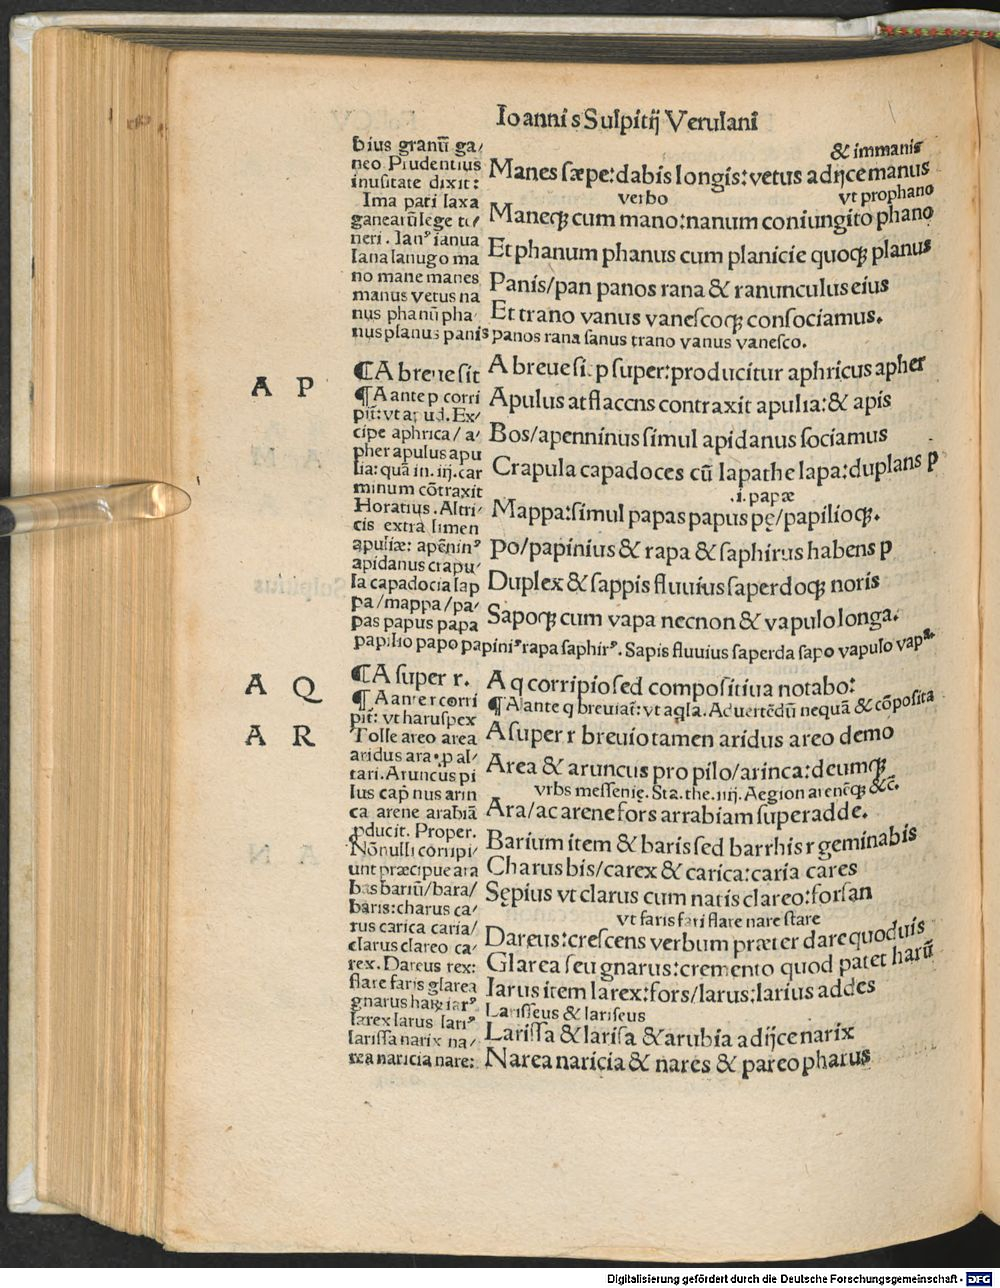 Ioannis Sulpitij Verulani
bius granũ ga/
neo Prudentius
inusitate dixit:
Ima pati saxa
ganearũ lege te/
neri. Ianꝰ ianua
Iana lanugo ma
no mane manes
manus vetus na
nus phanũ pha
nus planus panis panos rana sanus trano vanus vanesco.
& immanis
Manes sæpe: dabis longis: vetus adijce manus
verbo vt prophano
Maneqȝ cum mano: nanum coniungito phano
Et phanum phanus cum planicie quoqȝ planus
Panis/pan panos rana & ranunculus eius
Et trano vanus vanescoqȝ consociamus.
A P
¶A breue sit
¶A ante p corri
pit: vt apud. Ex/
cipe aphrica/a/
pher apulus apu
lia: quã in .iij. car
minum cõtraxit
Horatius. Altri/
cis extra limen
apuliæ: apẽninꝰ
apidanus crapu/
la capadocia lap
pa/mappa/pa/
pas papus papa
papilio papo papiniꝰ rapa saphirꝰ. Sapis fluuius saperda sapo vapulo vapa.
A breue si .p super: producitur aphricus apher
Apulus at flaccns contraxit apulia: & apis
Bos/apenninus simul apidanus sociamus
Crapula capadoces cũ lapathe lapa: duplans p
.i. papæ
Mappa: simul papas papus pę/papilioqȝ.
Po/papinius & rapa & saphirus habens p
Duplex & sappis fluuius saperdoqȝ noris
Sapoqȝ cum vapa necnon & vapulo longa.
A Q
¶A super r.
A q corripio sed compositiua notabo:
¶A ante q breuiat: vt aqla. Aduertẽdũ nequã & cõposita
A R
¶A ante r corri
pit: vt haruspex
Tolle areo area
aridus ara .p al/
tari. Aruncus pi
lus cap nus arin
ca arene arabiã
ꝓducit. Proper.
Nõnulli corripi/
unt præcipue ara
bas bariũ/bara/
baris: charus ca/
rus carica caria/
clarus clareo ca/
rex. Dareus rex:
flare faris glarea
gnarus harȝ iarꝰ
larex larus lariꝰ
larissa narix na/
rea naricia nare:
A super r breuio tamen aridus areo demo
Area & aruncus pro pilo/arinca: deumqȝ
vrbs messenię. Sta. the. iiij. Aegion areneqȝ &c̃.
Ara/ac arene fors arrabiam superadde.
Barium item & baris sed barrhis r geminabis
Charus bis/carex & carica: caria cares
Sępius vt clarus cum natis clareo: forsan
vt faris fari flare nare stare
Dareus: crescens verbum præter dare quoduis
Glarea seu gnarus: cremento quod patet harũ
Iarus item larex: fors/larus: larius addes
Larisseus & lariseus
Larissa & larisa & arubia adijce narix
Narea naricia & nares & pareo pharus
Digitalisierung gefördert durch die Deutsche Forschungsgemeinschaft - DFG